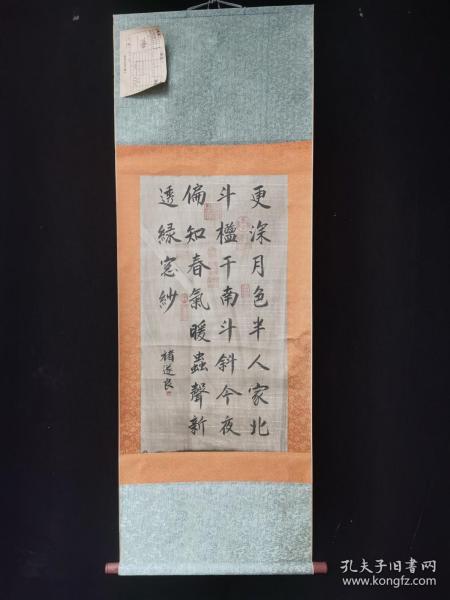 更深月色半人家北
斗楹干南斗斜今夜
偏知春氣暖蟲聲新
透緑窓紗
褚遂良
孔夫子旧书网
www.kongfz.com